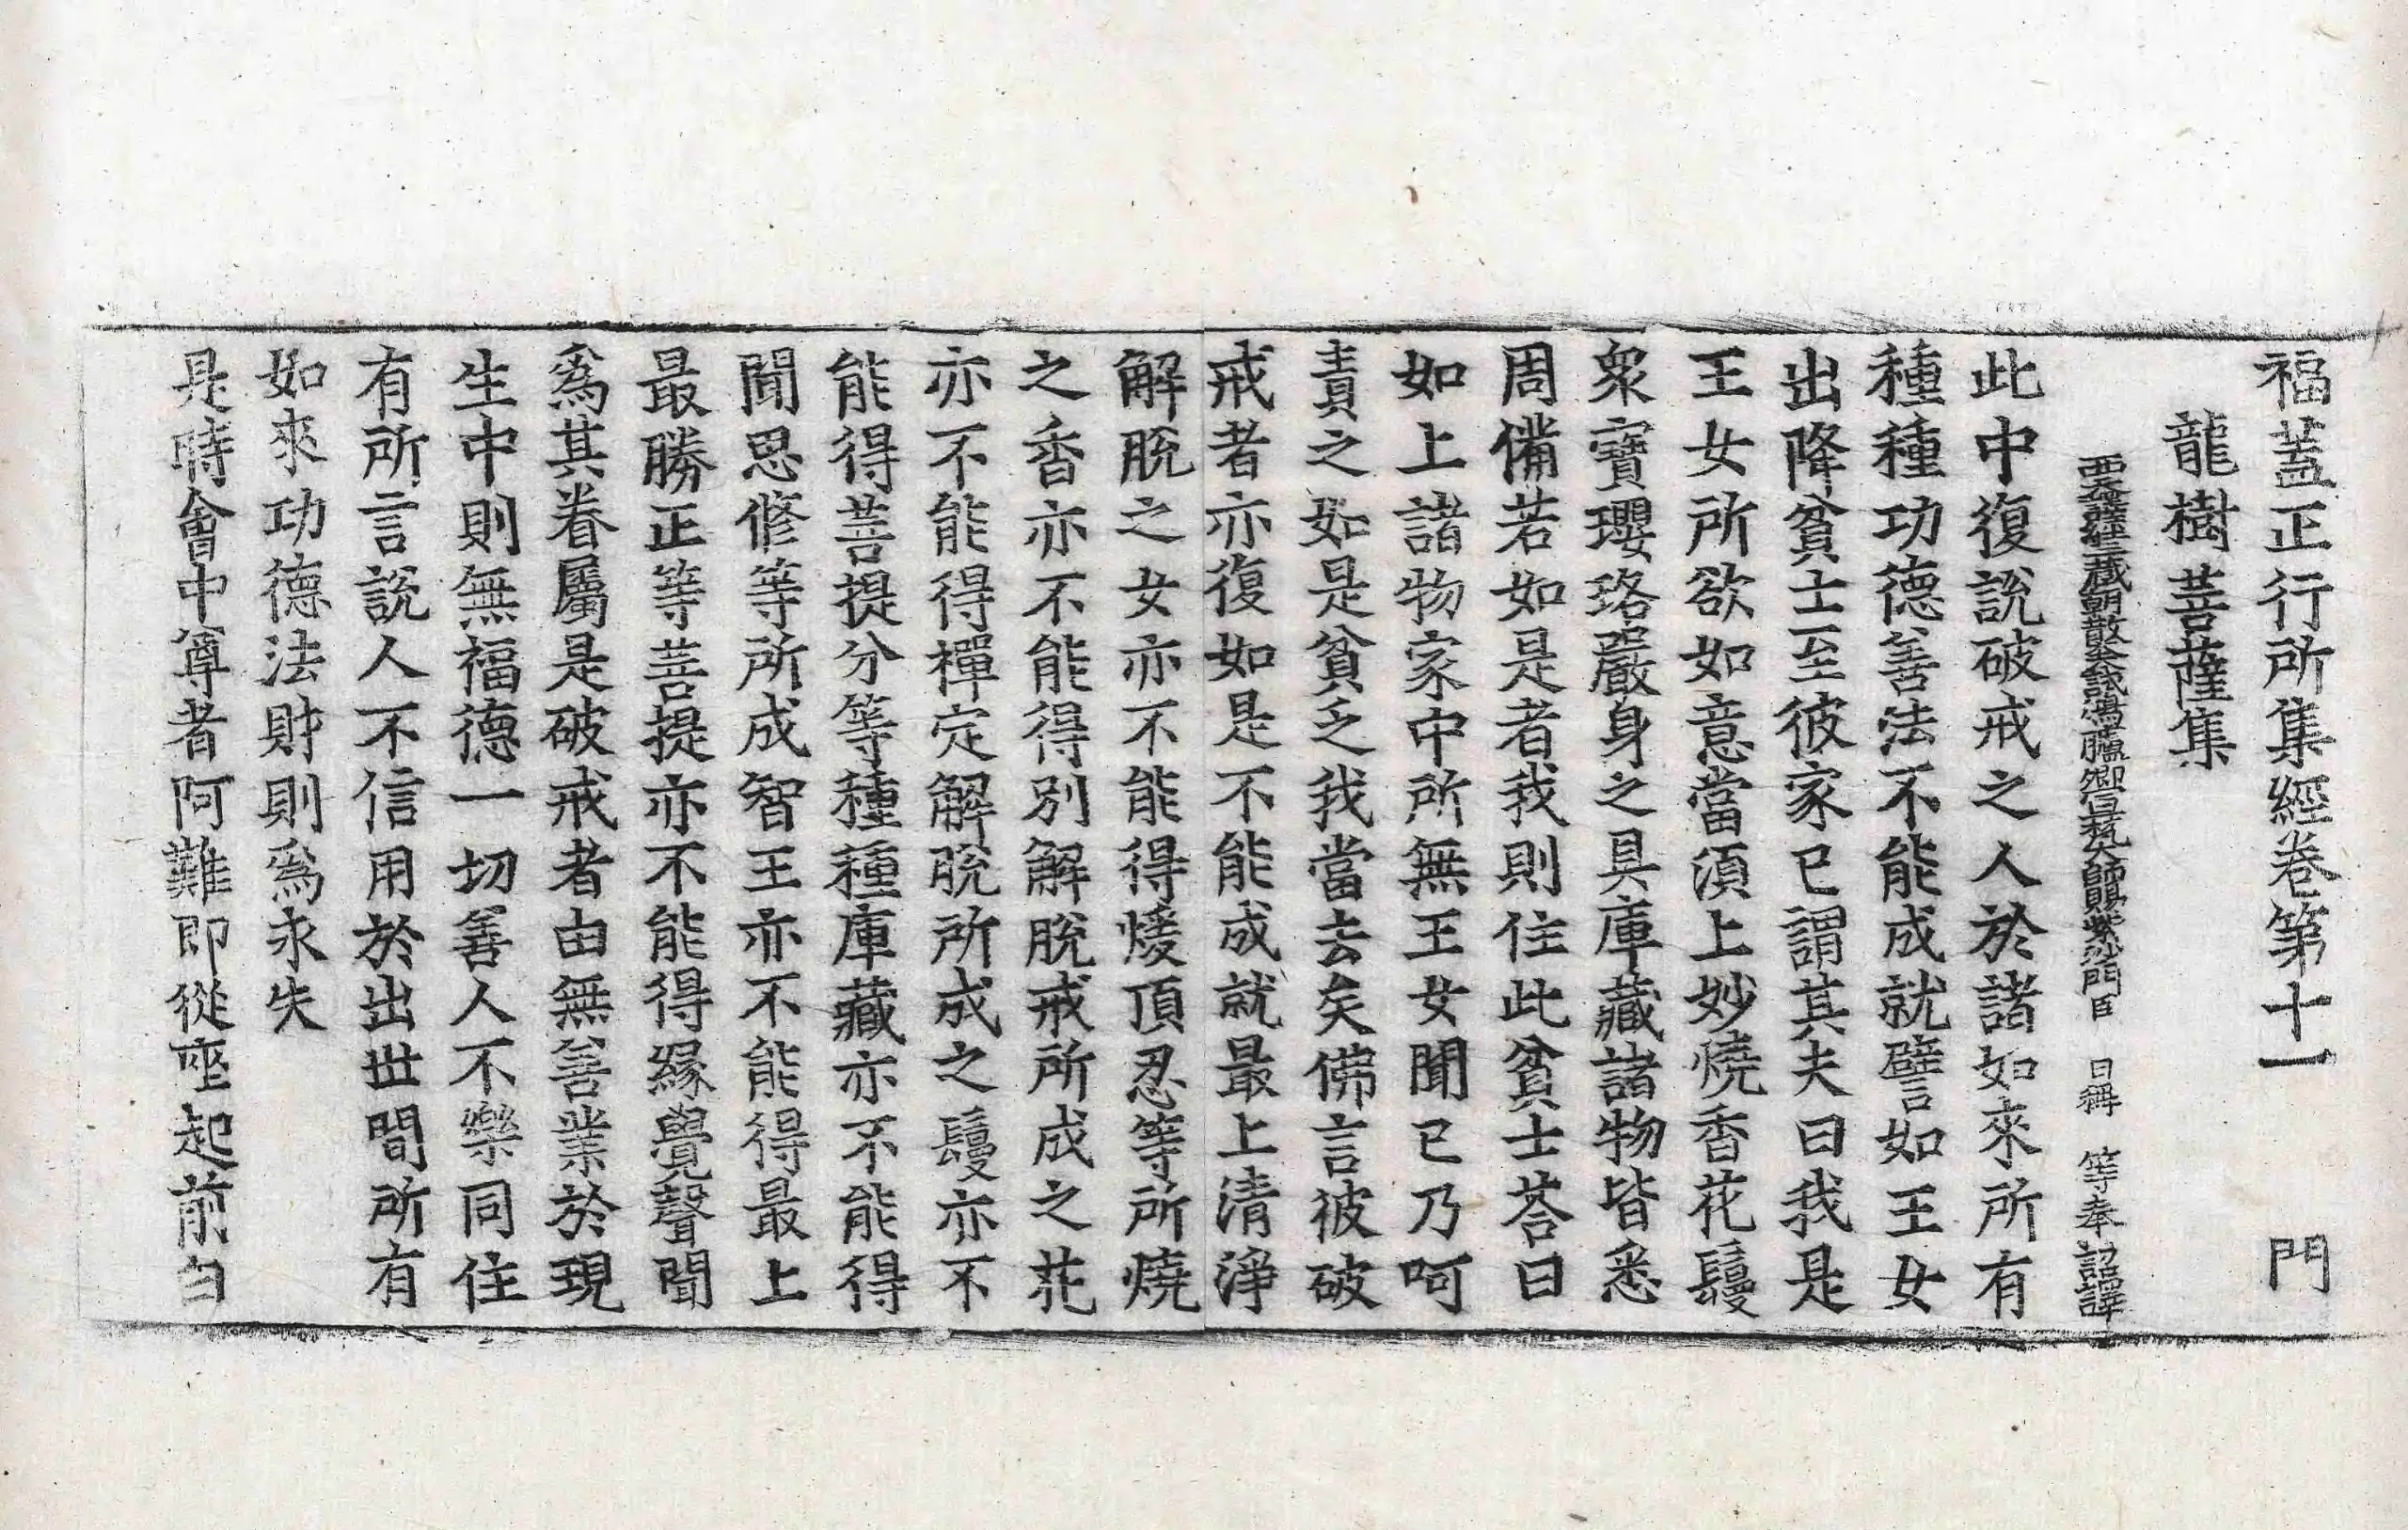 福蓋正行所集經卷第十一 門
龍樹菩薩集
西天譯經三藏朝散大夫試鴻臚卿宣梵大師賜紫沙門臣 日稱 等奉 詔譯
此中復說破戒之人於諸如來所有
種種功德善法不能成就譬如王女
出降貧士至彼家已謂其夫曰我是
王女所欲如意當須上妙燒香花鬘
衆寶瓔珞嚴身之具庫藏諸物皆悉
周備若如是者我則住此貧士荅曰
如上諸物家中所無王女聞已乃呵
責之如是貧乏我當去矣佛言彼破
戒者亦復如是不能成就最上清淨
解脫之女亦不能得煖頂忍等所燒
之香亦不能得別解脫戒所成之花
亦不能得禪定解脫所成之鬘亦不
能得菩提分等種種庫藏亦不能得
聞思修等所成智王亦不能得最上
最勝正等菩提亦不能得緣覺聲聞
爲其眷屬是破戒者由無善業於現
生中則無福德一切善人不樂同住
有所言說人不信用於出世間所有
如來功德法財則爲永失
是時會中尊者阿難即從座起前白